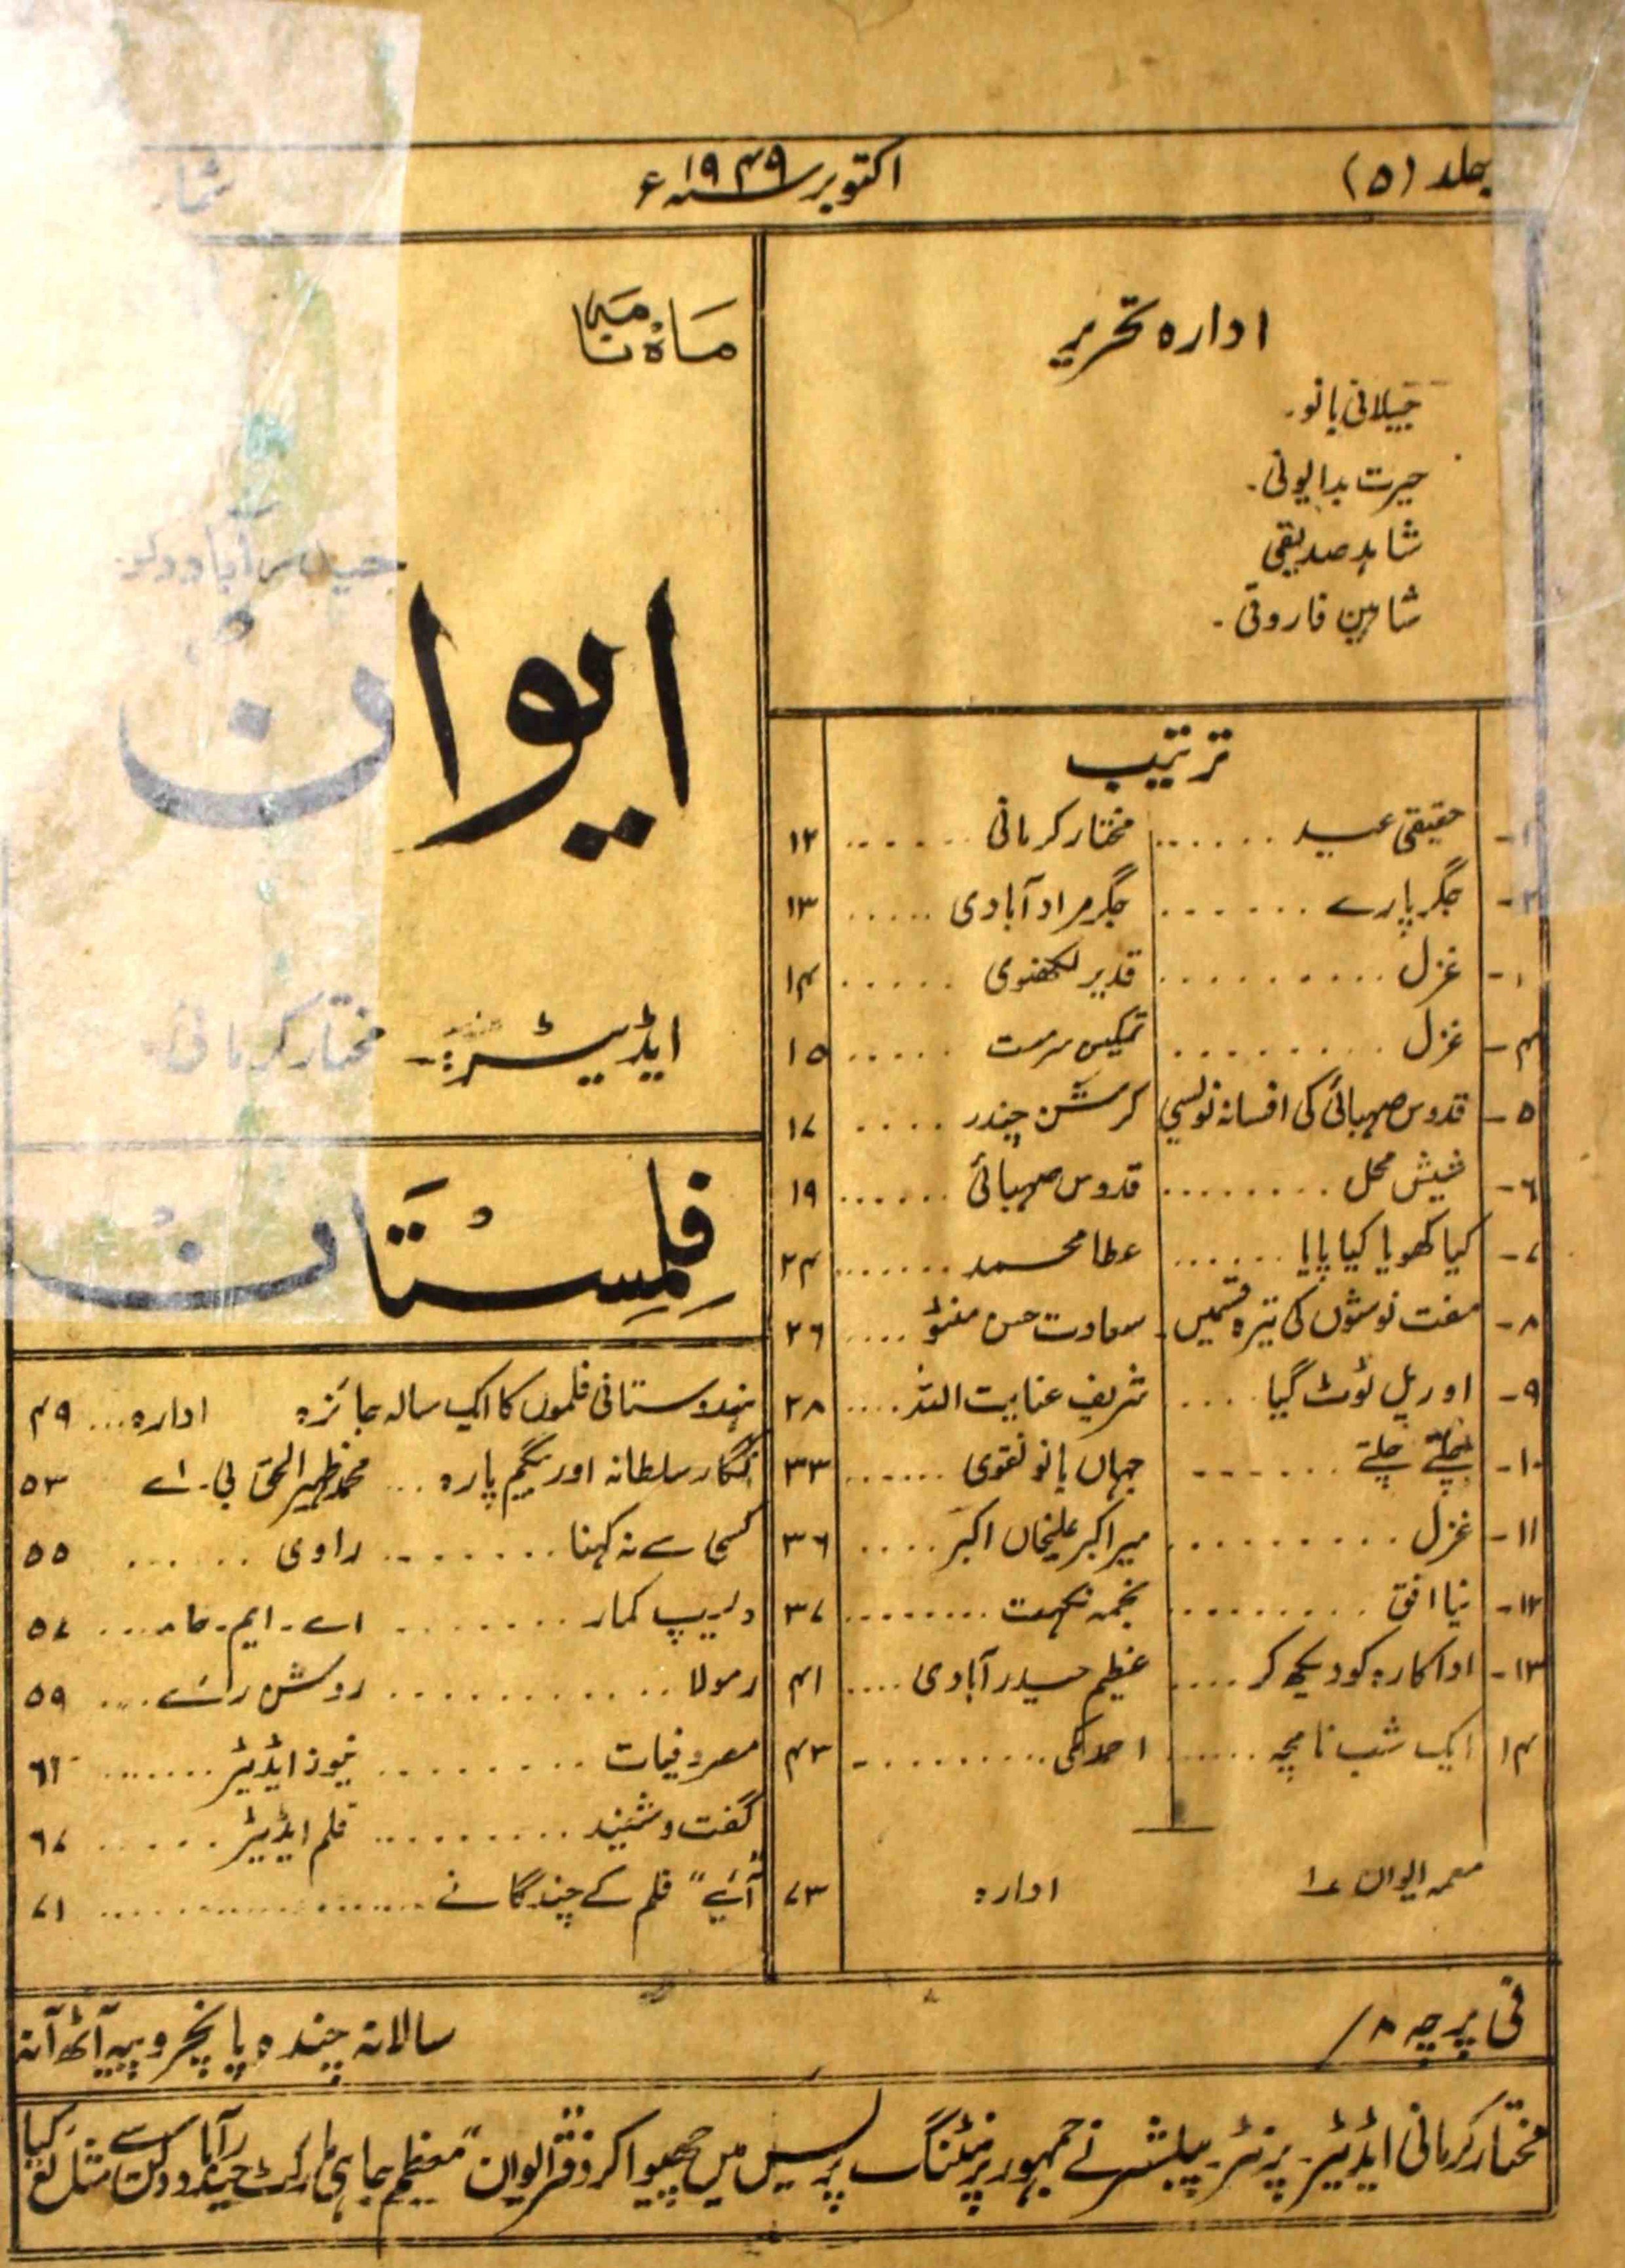 جلد (۵)
اکتوبر ۱۹۴۹ء
شمار
ادارہ تحریر
جیلانی بانو۔
حیرت بدایونی۔
شاہد صدیقی
شاہین فاروقی۔
ترتیب
۱۔ حقیقی عید ...... مختار کرمانی ...... ۱۲
۲۔ جگر پارے ...... جگر مراد آبادی ..... ۱۳
۔ غزل ......... قدیر لکھنوی ..... ۱۴
۴۔ غزل ........ تمکین سرمست ..... ۱۵
۵۔ قدوس صہبائی کی افسانہ نویسی کرشن چندر .... ۱۷
۶۔ شیش محل ........ قدوس صہبائی ...... ۱۹
۷۔ کیا کھویا کیا پایا ...... عطا محمد ....... ۲۴
۸۔ مفت نوشوں کی تیرہ قسمیں۔ سعادت حسن منٹو .... ۲۶
۹۔ اور پل ٹوٹ گیا .... شریف عنایت اللہ .... ۲۸
۱۰۔ چلتے چلتے ...... جہاں بانو نقوی ...... ۳۳
۱۱۔ غزل ......... میر اکبر علیخاں اکبر .... ۳۶
۱۲۔ نیا افق ......... نجمہ نکہت ........ ۳۷
۱۳۔ اداکارہ کو دیکھ کر .... عظیم حیدرآبادی .... ۴۱
۱۴ ایک شب نامچہ ...... احمد مکی ......... ۴۳
معمہ ایوان ۱ ادارہ ۷۳
ماہ نامہ
حیدرآباد دکن
ایوان
ایڈیٹر:۔ مختار کرمانی
فلمستان
ہندوستانی فلموں کا ایک سالہ جائزہ ادارہ ... ۴۹
نگار سلطانہ اور بیگم پارہ ... محمد ظہیر الحق بی۔ اے ۵۳
کسی سے نہ کہنا ........ راوی ...... ۵۵
دلیپ کمار ........ اے۔ ایم۔ .... ۵۷
رمولا ............ روشن رائے .... ۵۹
مصروفیات ......... نیوز ایڈیٹر ....... ۶۱
گفت و شنید ......... فلم ایڈیٹر ...... ۶۷
"آئیے" فلم کے چند گانے .................. ۷۱
فی پرچہ ۸/
سالانہ چندہ پانچ روپیہ آٹھ آنہ
مختار کرمانی ایڈیٹر۔ پرنٹر۔ پبلشر نے جمہور پرنٹنگ پریس میں چھپوا کر دفتر ایوان" معظم جاہی مارکٹ حیدرآباد دکن سے شائع کیا